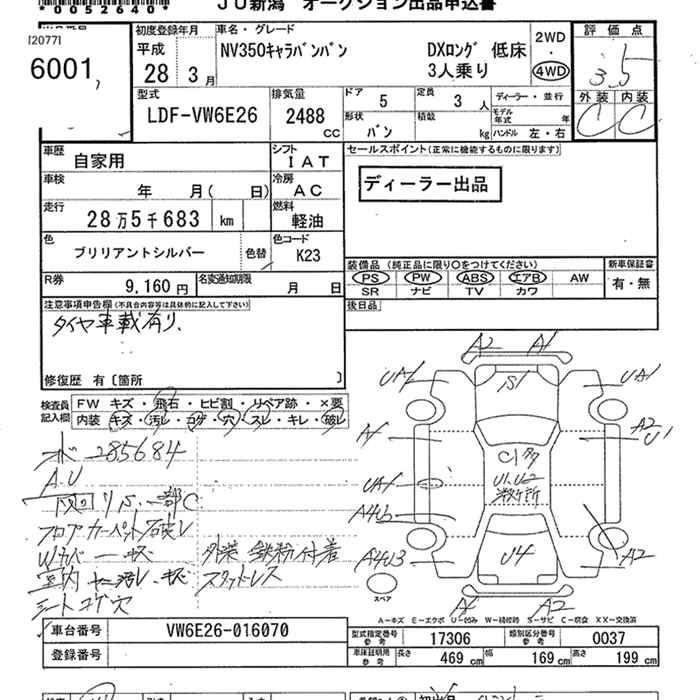 *0052640*
JU新潟 オークション出品申込書
[2077]
6001,
初度登録年月
平成
28年3月
車名・グレード
NV350キャラバンバン DXロング 低床
3人乗り
2WD
・
4WD
評価点
3.5
外装 内装
C C
型式
LDF-VW6E26
排気量
2488
CC
ドア 5
定員 3人
ディーラー・並行
形状
バン
積載 kg
モデル年式 年
ハンドル 左・右
車歴
自家用
シフト
IAT
セールスポイント(正常に機能するものに限ります)
ディーラー出品
車検
年 月( 日)
冷房
AC
走行
28万5千683 km
燃料
軽油
色
ブリリアントシルバー
色替
色コード
K23
R券
9,160円
名変通知期限
月 日
装備品(純正品に限り○をつけてください)
PS PW ABS エアB AW
SR ナビ TV カワ
新車保証書
有・無
後日品
注意事項申告欄(不具合内容等は具体的に記入して下さい)
タイヤ車載有り.
修復歴 有〔箇所 〕
検査員
記入欄
FW キズ・飛石・ヒビ割・リペア跡・×要
内装 キズ・汚レ・コゲ・穴・スレ・キレ・破レ
285684
A.U
下回りS 一部C
フロアカーペット破レ
室内
シートコゲ穴
外装 鉄粉付着
スタッドレス
A2 A1
UA1 S1 UA1
A1 A2
U1
C1
U1.U2
多数箇所
UA1
A4U3
A4U3 U4 A2
スペア
A A2
A-キズ E-エクボ U-凹み W-補修跡 S-サビ C-腐食 XX-交換済
車台番号 VW6E26-016070
登録番号
型式指定番号
参考
17306
類別区分番号
参考
0037
車庫証明用
参考
長さ 469 cm 幅 169 cm 高さ 199 cm